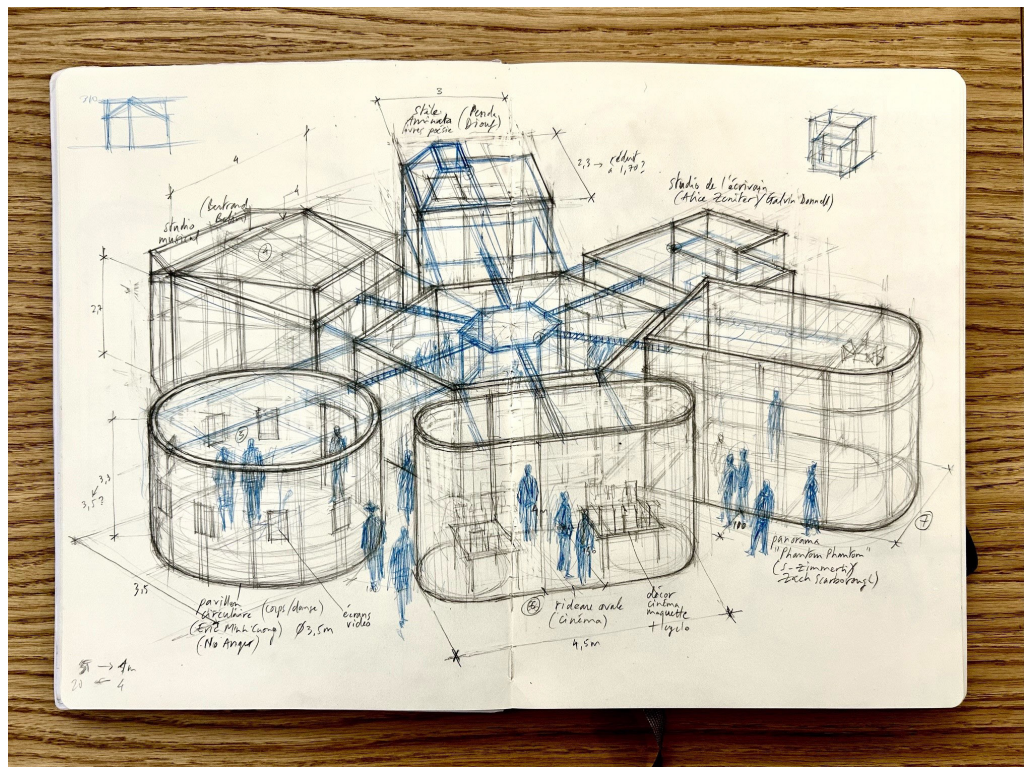 3
stèle
Aminata (Penda
avec poésie Diouf)
2,3 → réduit
à 1,70?
studio de l'écrivain
(Alice Zeniter / Galvin Donnell)
4
4
(Bertrand
studio
musical
4
2,7
3,3
3,5?
3,15
pavillon
circulaire (corps/danse)
(Eric Minh Cuong) Ø 3,5m
(No Anger)
écrans
vidéo
rideau ovale
(cinéma)
4,5m
décor
cinéma
maquette
+ cyclo
180
panorama
"Phantom Phantom"
(S-Zimmerli/
Zach Scarborough)
7
→ 4m
20 ← 4